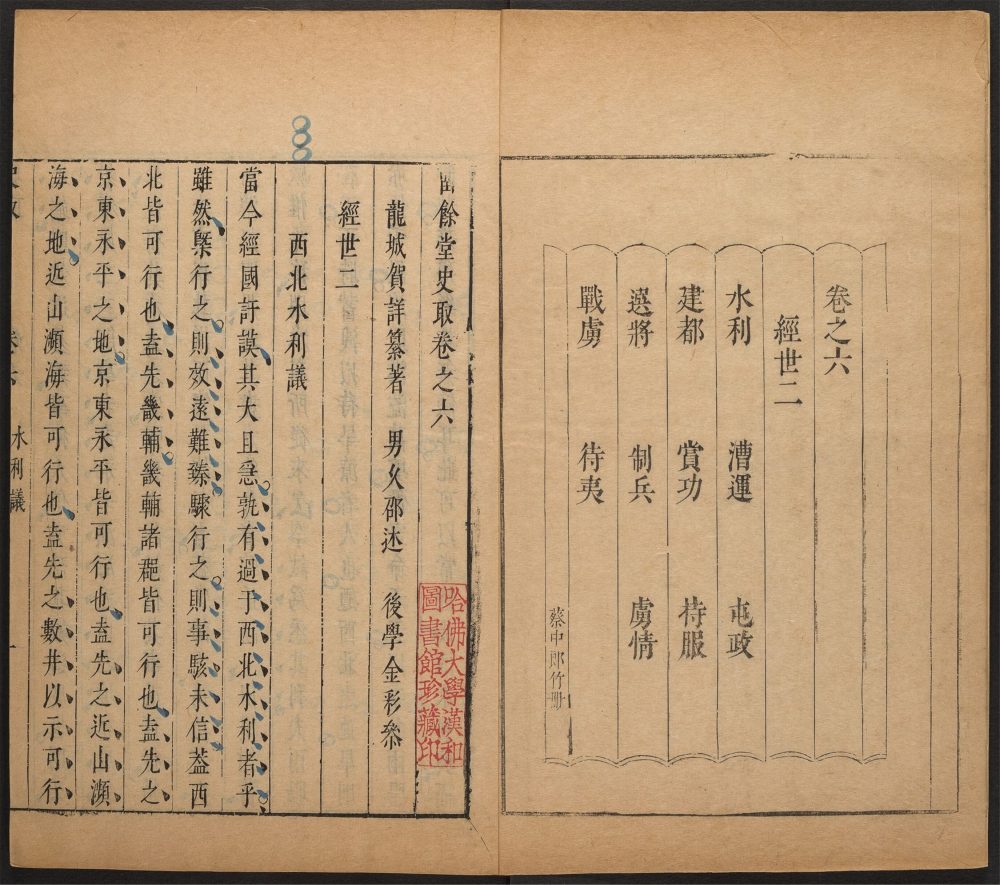 卷之六
經世二
水利 漕運 屯政
建都 賞功 待服
選將 制兵 虜情
戰虜 待夷
蔡中郎竹册
留餘堂史取卷之六
龍城賀詳纂著 男久邵述 後學金彩叅
經世二
西北水利議
當今經國訏謨其大且急孰有過于西北水利者乎
雖然槩行之則效遠難臻驟行之則事駭未信葢西
北皆可行也盍先之畿輔畿輔諸郡皆可行也盍先之
京東永平之地京東永平皆可行也盍先之近山瀕
海之地近山瀕海皆可行也盍先之數井以示可行
史取 卷六 水利議 一
哈佛大學漢和
圖書館珍藏印